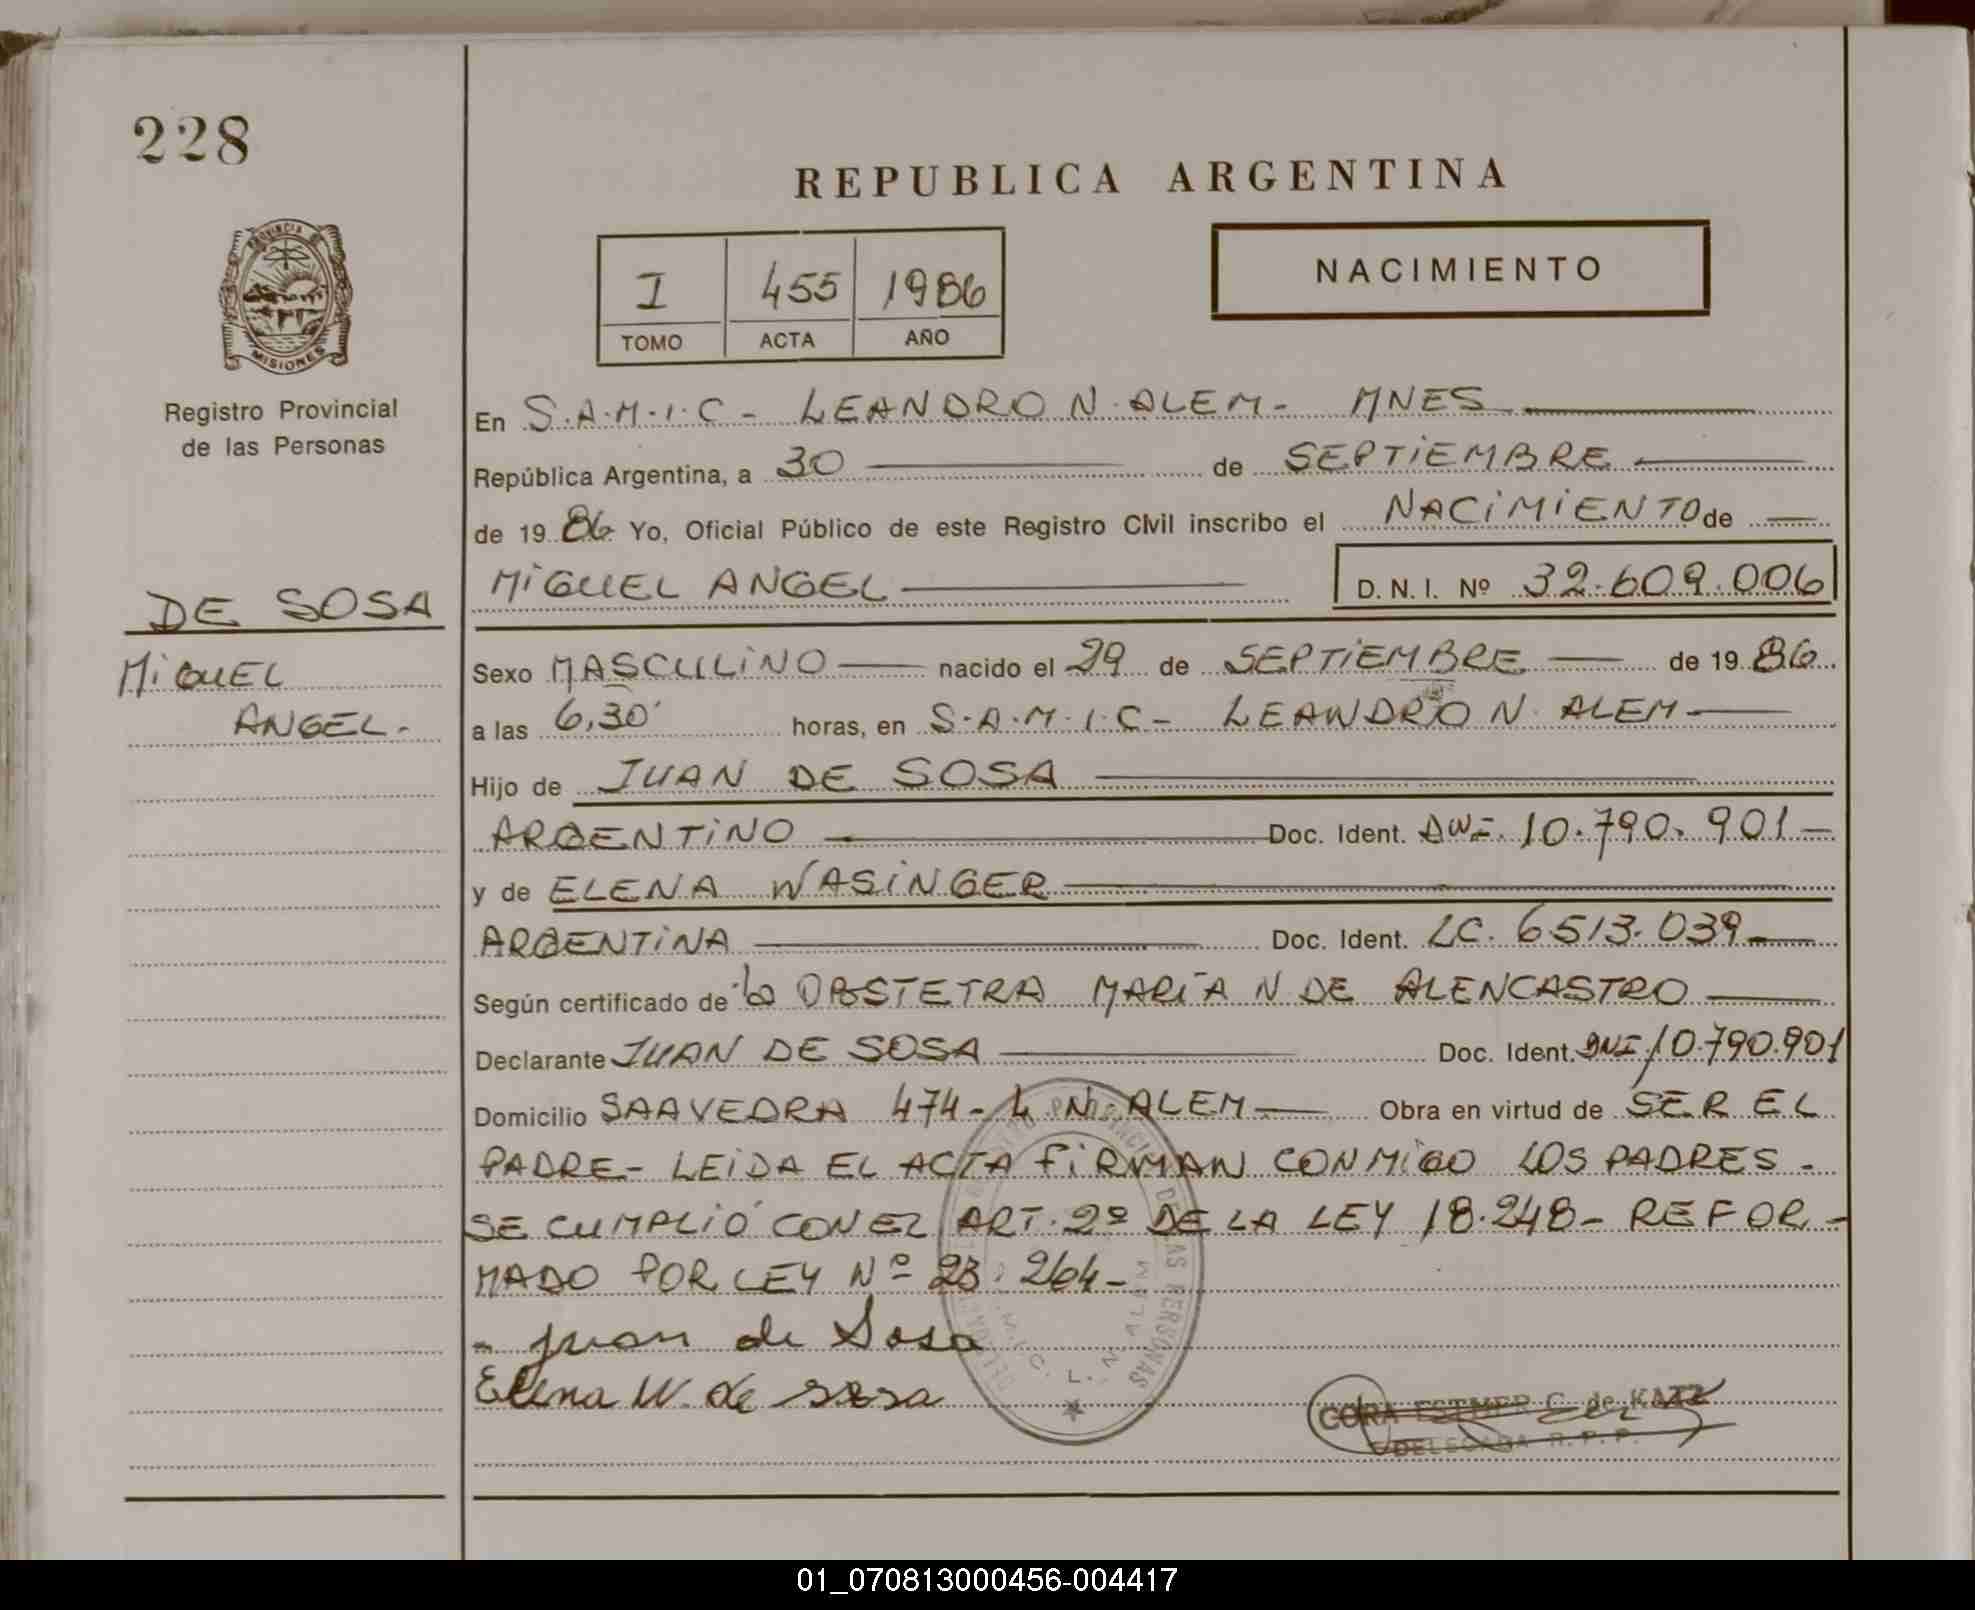 228
REPUBLICA ARGENTINA
PROVINCIA DE
MISIONES
Registro Provincial
de las Personas
I 455 1986
TOMO ACTA AÑO
NACIMIENTO
DE SOSA
MIGUEL
ANGEL.-
En S.A.M.I.C - LEANDRO N. ALEM - MNES
República Argentina, a 30 de SEPTIEMBRE
de 19 86 Yo, Oficial Público de este Registro Civil inscribo el NACIMIENTO de
MIGUEL ANGEL D. N. I. Nº 32.609.006
Sexo MASCULINO nacido el 29 de SEPTIEMBRE de 19 86
a las 6,30' horas, en S.A.M.I.C - LEANDRO N. ALEM
Hijo de JUAN DE SOSA
ARGENTINO Doc. Ident. DNI. 10.790.901
y de ELENA WASINGER
ARGENTINA Doc. Ident. LC. 6513.039
Según certificado de la OBSTETRA MARIA N. DE ALENCASTRO
Declarante JUAN DE SOSA Doc. Ident. DNI 10.790.901
Domicilio SAAVEDRA 474 - L. N. ALEM Obra en virtud de SER EL
PADRE - LEIDA EL ACTA FIRMAN CONMIGO LOS PADRES.
SE CUMPLIÓ CON EL ART. 2º DE LA LEY 18.248 - REFOR-
MADO POR LEY Nº 23.264 -
Juan de Sosa
Elena W. de Sosa
CORA ESTHER C. de KATZ
DELEGADA R. P. P.
01_070813000456-004417